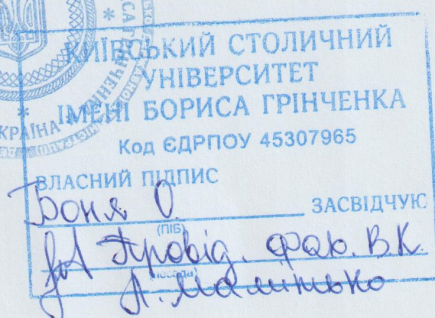 КИЇВСЬКИЙ СТОЛИЧНИЙ
УНІВЕРСИТЕТ
ІМЕНІ БОРИСА ГРІНЧЕНКА
Код ЄДРПОУ 45307965
ВЛАСНИЙ ПІДПИС
Боня О. ЗАСВІДЧУЮ
(ПІБ)
Провід. фах. В.К.
(посада)
УКРАЇНА